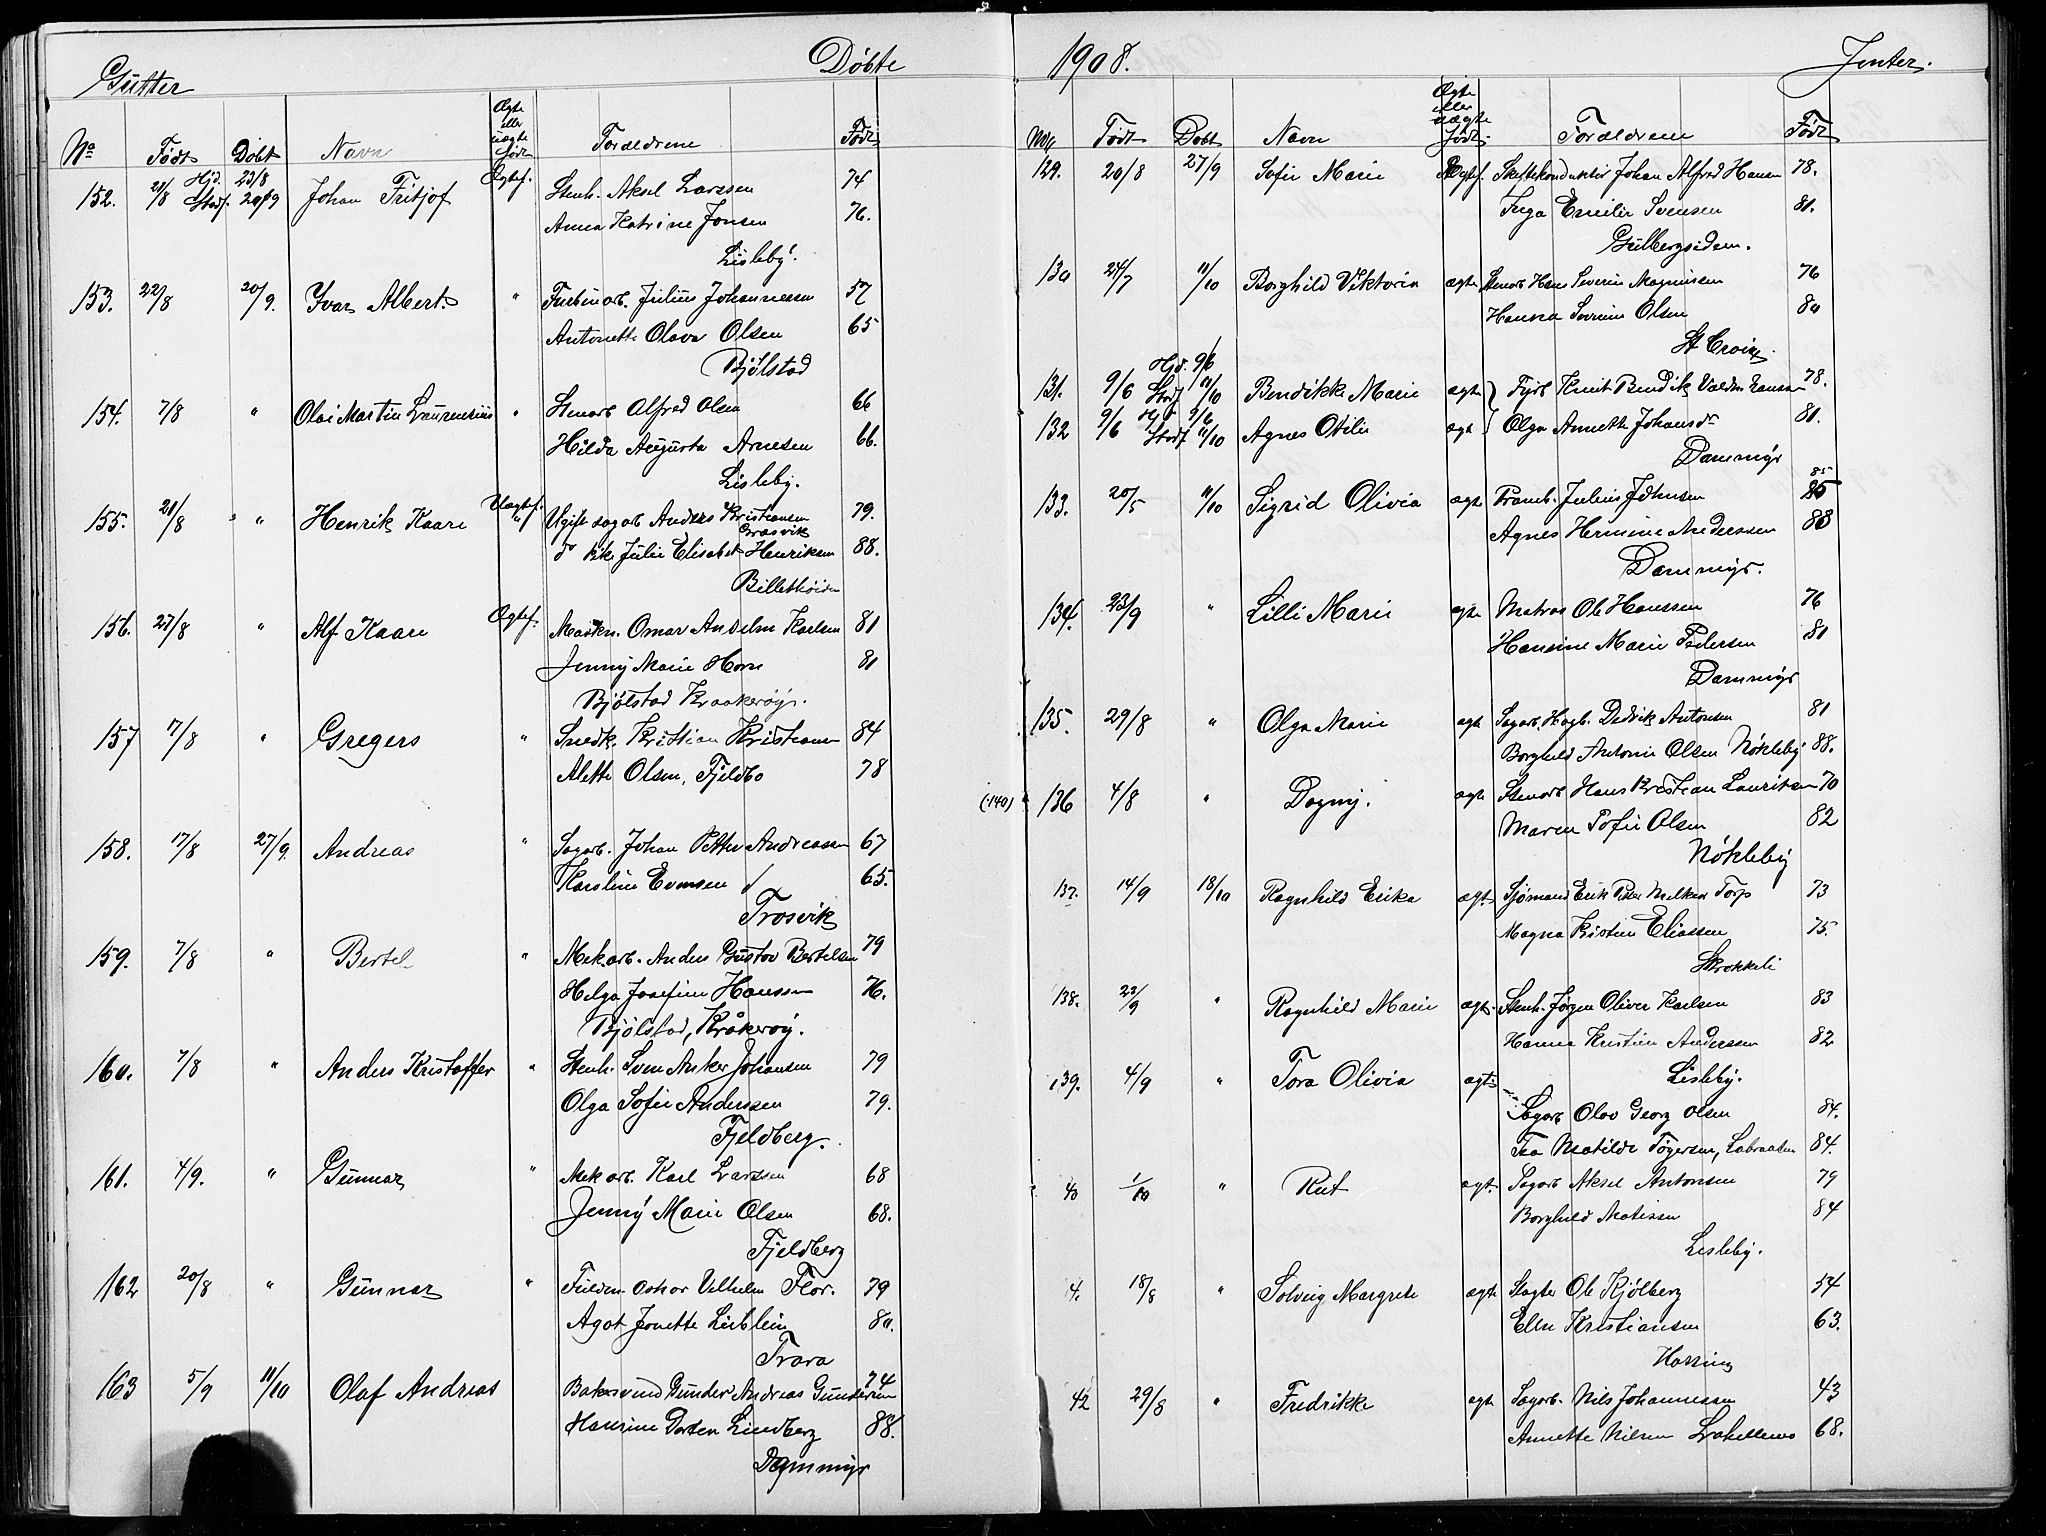 Gutter Døbte
No Født Døbt Navn Ægte eller uægte født Forældrene Født
152. 21/8 Hjd. 23/8 Stadf. 20/9 Johan Fritjof Ægtef. Stenh. Aksel Larssen 74
Anna Katrine Jonsen 76.
Lisleby.
153. 22/8 20/9. Ivar Albert " Julius Johannessen 57
Antonette Olava Olsen 65
Bjølstad
154. 7/8 " Olai Martin Laurensius " Stenarb Alfred Olsen 66
Hilda Augusta Arnesen 66.
Lisleby.
155. 21/8 " Henrik Kaare Uægtef. Ugift sagarb Anders Kristiansen 79.
Græsvik
do pike Julie Elisabet Henriksen 88.
156. 27/8 " Alf Kaare Ægtef. Maskn. Omar Anselm Karlsen 81
Jenny Marie Horn 81
Bjølstad Kraakerøy.
157 7/8 " Gregers " Snedk. Kristian Kristiansen 84
Alette Olsen, Fjeldbo 78
158. 17/8 27/9. Andreas " Sagarb. Johan Petter Andreassen 67
Karoline Evensen 65.
Trosvik
159. 7/8 " Bertel " Mek arb. Anders Gustav Bertelsen 79
Helga Josefine Hanssen 76.
Bjølstad, Kråkerøy.
160. 7/8 " Anders Kristoffer " Stenh. Sven Anker Johansen 79
Olga Sofie Anderssen 79.
Fjeldberg.
161. 4/9. " Gunnar " Mek arb. Karl Larssen 68
Jenny Marie Olsen 68.
Fjeldberg
162 20/8 " Gunnar " Oskar Vilhelm Flor. 79
Agot Jonette Lieblein 80.
Trara
163 5/9 11/10 Olaf Andreas Gunder Andreas Gundersen 74
Hansine Lindberg 88.
Dammyr
1908. Jenter.
No Født Døbt Navn Ægte eller uægte født Forældrene Født
129. 20/8 27/9 Sofie Marie Ægtef. Johan Alfred Hansen 78.
Inga Emilie Svensen 81.
Gulbergsiden.
130 24/7 11/10 Borghild Viktoria ægte Stenarb Hans Severin Magnussen 76
Hanna Severine Olsen 80
St Croix.
131. 9/6 Hjd. 9/6 Stadf 11/10 Bendikke Marie ægte Fyrb Knut Bendik Valdm Hanssen 78.
132 9/6 Hjd 9/6 Stadf 11/10 Agnes Otilie ægt Olga Annette Johansdr 81.
Dammyr
133. 20/5 11/10 Sigrid Olivia ægte Julius Johnsen 85
Agnes Hermine Anderssen 88
Dammyr.
134. 23/9 " Lilli Marie ægte Matros Ole Hanssen 76
Hansine Marie Pedersen 81
Dammyr
135. 29/8 " Olga Marie ægt Sagarb. Hagb. Dedrik Antonsen 81
Borghild Antonie Olsen Nøkleby 88.
(140) 136 4/8 " Dagny. ægte Stenarb Hans Kristian Lauritsen 70
Maren Sofie Olsen 82
Nøkleby
137. 14/9 18/10 Ragnhild Erika ægt. Sjømand Erik Peter Torp 73
Magna Kristine Eliassen 75.
138. 22/9 " Ragnhild Marie ægt. Stenh. Jørgen Oliver Karlsen 83
Hanna Kristine Anderssen 82
Lisleby.
139. 4/9 " Tora Olivia ægt. Sagarb Olav Georg Olsen 84.
Tea Matilde Tøgersen, Labraaten 84.
40 1/10 " Rut ægt. Sagarb Aksel Antonsen 79
Borghild Matisen 84
Lisleby.
4. 18/8 " Solveig Margrete ægt. Slagter Ole Kjølberg 54
Ellen Kristiansen 63.
42 29/8 " Fredrikke ægt. Sagarb. Nils Johannessen 43
Annette Nilsen 68.